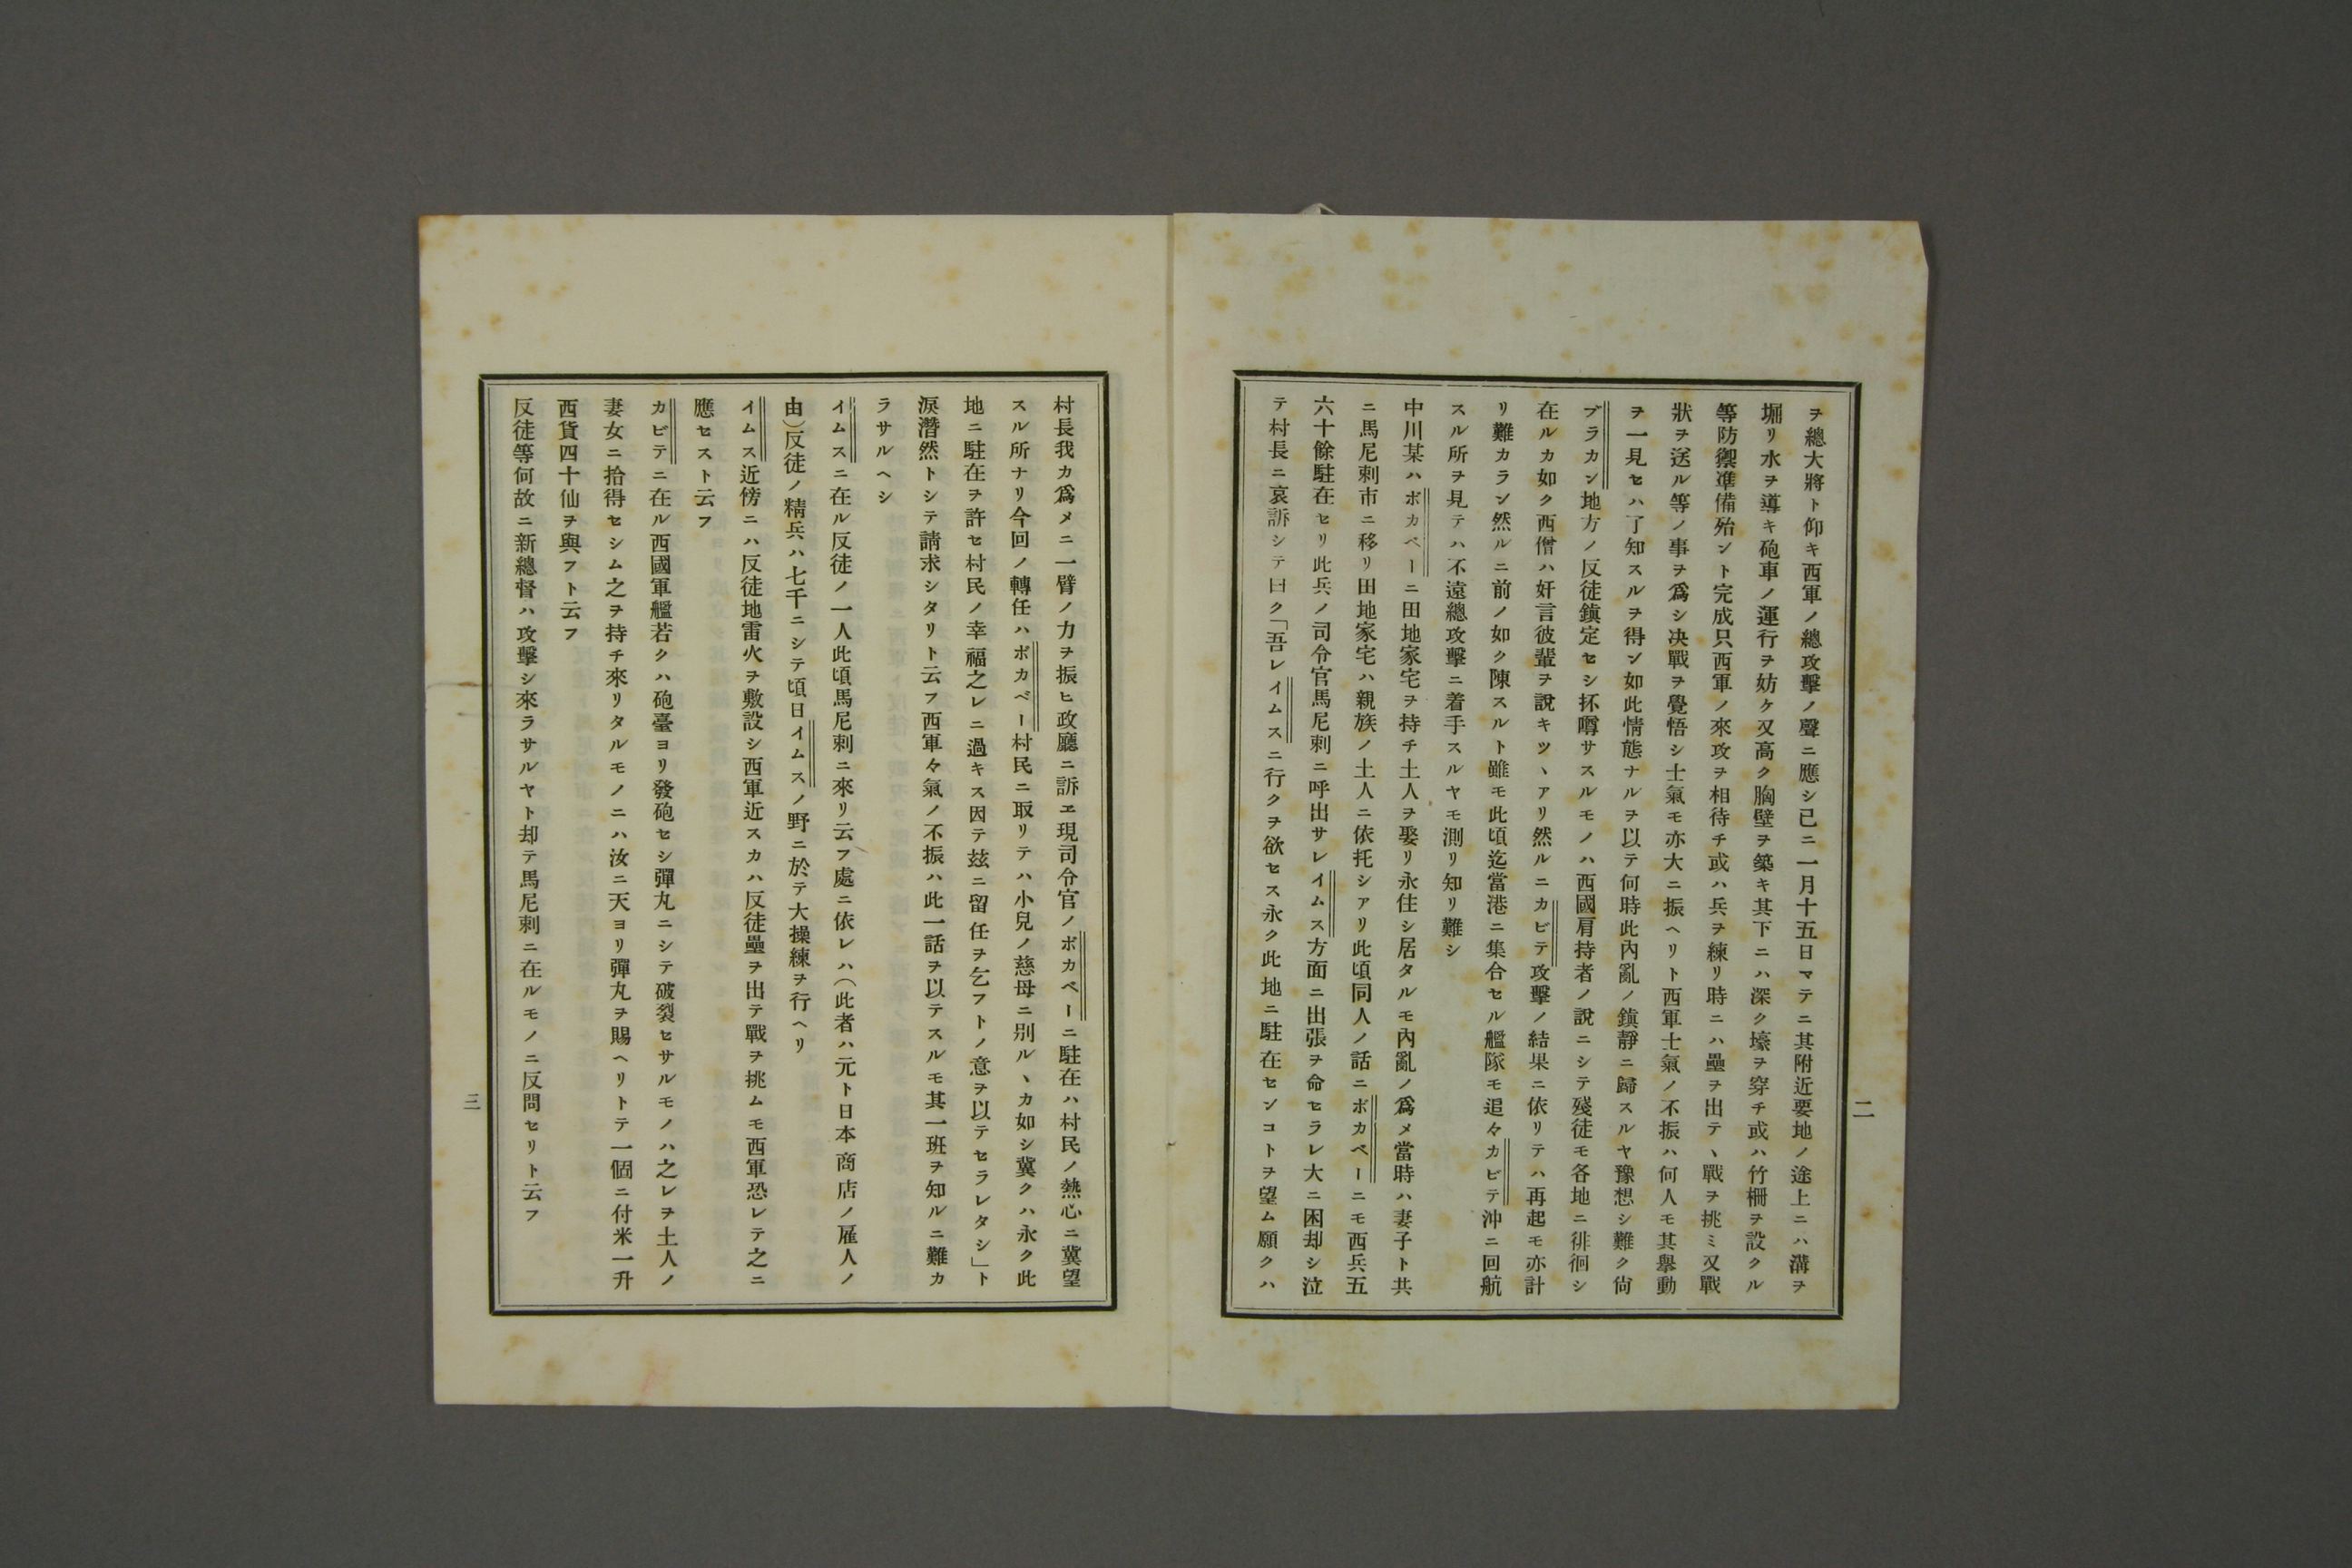 ヲ總大將ト仰キ西軍ノ總攻擊ノ聲ニ應シ已ニ一月十五日マテニ其附近要地ノ途上ニハ溝ヲ
堀リ水ヲ導キ砲車ノ運行ヲ妨ケ又高ク胸壁ヲ築キ其下ニハ深ク壕ヲ穿チ或ハ竹柵ヲ設クル
等防禦準備殆ント完成只西軍ノ來攻ヲ相待チ或ハ兵ヲ練リ時ニハ壘ヲ出テヽ戰ヲ挑ミ又戰
狀ヲ送ル等ノ事ヲ爲シ決戰ヲ覺悟シ士氣モ亦大ニ振ヘリト西軍士氣ノ不振ハ何人モ其擧動
ヲ一見セハ了知スルヲ得ン如此情態ナルヲ以テ何時此內亂ノ鎭靜ニ歸スルヤ豫想シ難ク尙
ブラカン地方ノ反徒鎭定セシ抔噂サスルモノハ西國肩持者ノ說ニシテ殘徒モ各地ニ徘徊シ
在ルカ如ク西僧ハ奸言彼輩ヲ說キツヽアリ然ルニカビテ攻擊ノ結果ニ依リテハ再起モ亦計
リ難カラン然ルニ前ノ如ク陳スルト雖モ此頃迄當港ニ集合セル艦隊モ追々カビテ沖ニ回航
スル所ヲ見テハ不遠總攻擊ニ着手スルヤモ測リ知リ難シ
中川某ハボカベーニ田地家宅ヲ持チ土人ヲ娶リ永住シ居タルモ內亂ノ爲メ當時ハ妻子ト共
ニ馬尼剌市ニ移リ田地家宅ハ親族ノ土人ニ依托シアリ此頃同人ノ話ニボカベーニモ西兵五
六十餘駐在セリ此兵ノ司令官馬尼剌ニ呼出サレイムス方面ニ出張ヲ命セラレ大ニ困却シ泣
テ村長ニ哀訴シテ曰ク「吾レイムスニ行クヲ欲セス永ク此地ニ駐在センコトヲ望ム願クハ
二
村長我カ爲メニ一臂ノ力ヲ振ヒ政廳ニ訴ヱ現司令官ノボカベーニ駐在ハ村民ノ熱心ニ冀望
スル所ナリ今回ノ轉任ハボカベー村民ニ取リテハ小兒ノ慈母ニ別ルヽカ如シ冀クハ永ク此
地ニ駐在ヲ許セ村民ノ幸福之レニ過キス因テ玆ニ留任ヲ乞フトノ意ヲ以テセラレタシ」ト
淚潛然トシテ請求シタリト云フ西軍々氣ノ不振ハ此一話ヲ以テスルモ其一班ヲ知ルニ難カ
ラサルヘシ
イムスニ在ル反徒ノ一人此頃馬尼剌ニ來リ云フ處ニ依レハ（此者ハ元ト日本商店ノ雇人ノ
由）反徒ノ精兵ハ七千ニシテ頃日イムスノ野ニ於テ大操練ヲ行ヘリ
イムス近傍ニハ反徒地雷火ヲ敷設シ西軍近スカハ反徒壘ヲ出テ戰ヲ挑ムモ西軍恐レテ之ニ
應セスト云フ
カビテニ在ル西國軍艦若クハ砲臺ヨリ發砲セシ彈丸ニシテ破裂セサルモノハ之レヲ土人ノ
妻女ニ拾得セシム之ヲ持チ來リタルモノニハ汝ニ天ヨリ彈丸ヲ賜ヘリトテ一個ニ付米一升
西貨四十仙ヲ與フト云フ
反徒等何故ニ新總督ハ攻擊シ來ラサルヤト却テ馬尼剌ニ在ルモノニ反問セリト云フ
三